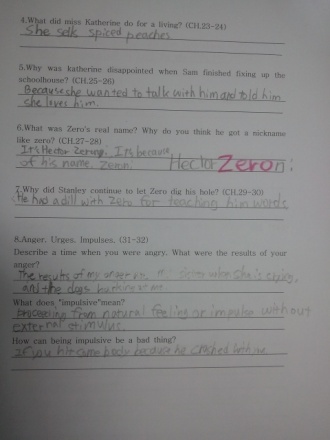 4.What did miss Katherine do for a living? (CH.23-24)
She sells spiced peaches
5.Why was katherine disappointed when Sam finished fixing up the
schoolhouse? (CH.25-26)
Because she wanted to talk with him and told him
she loves him.
6.What was Zero's real name? Why do you think he got a nickname
like zero? (CH.27-28)
It's Hector Zeroni. It's because
of his name. Zeroni. Hector Zeroni
7.Why did Stanley continue to let Zero dig his hole? (CH.29-30)
He had a dill with Zero for teaching him words
8.Anger, Urges, Impulses, (31-32)
Describe a time when you were angry. What were the results of your
anger?
The results of my anger sister when she is crying,
and the dogs barking
What does "impulsive"mean?
proceeding from natural feeling or impulse without
external stimulus
How can being impulsive be a bad thing?
If you hit somebody because he crashed with me